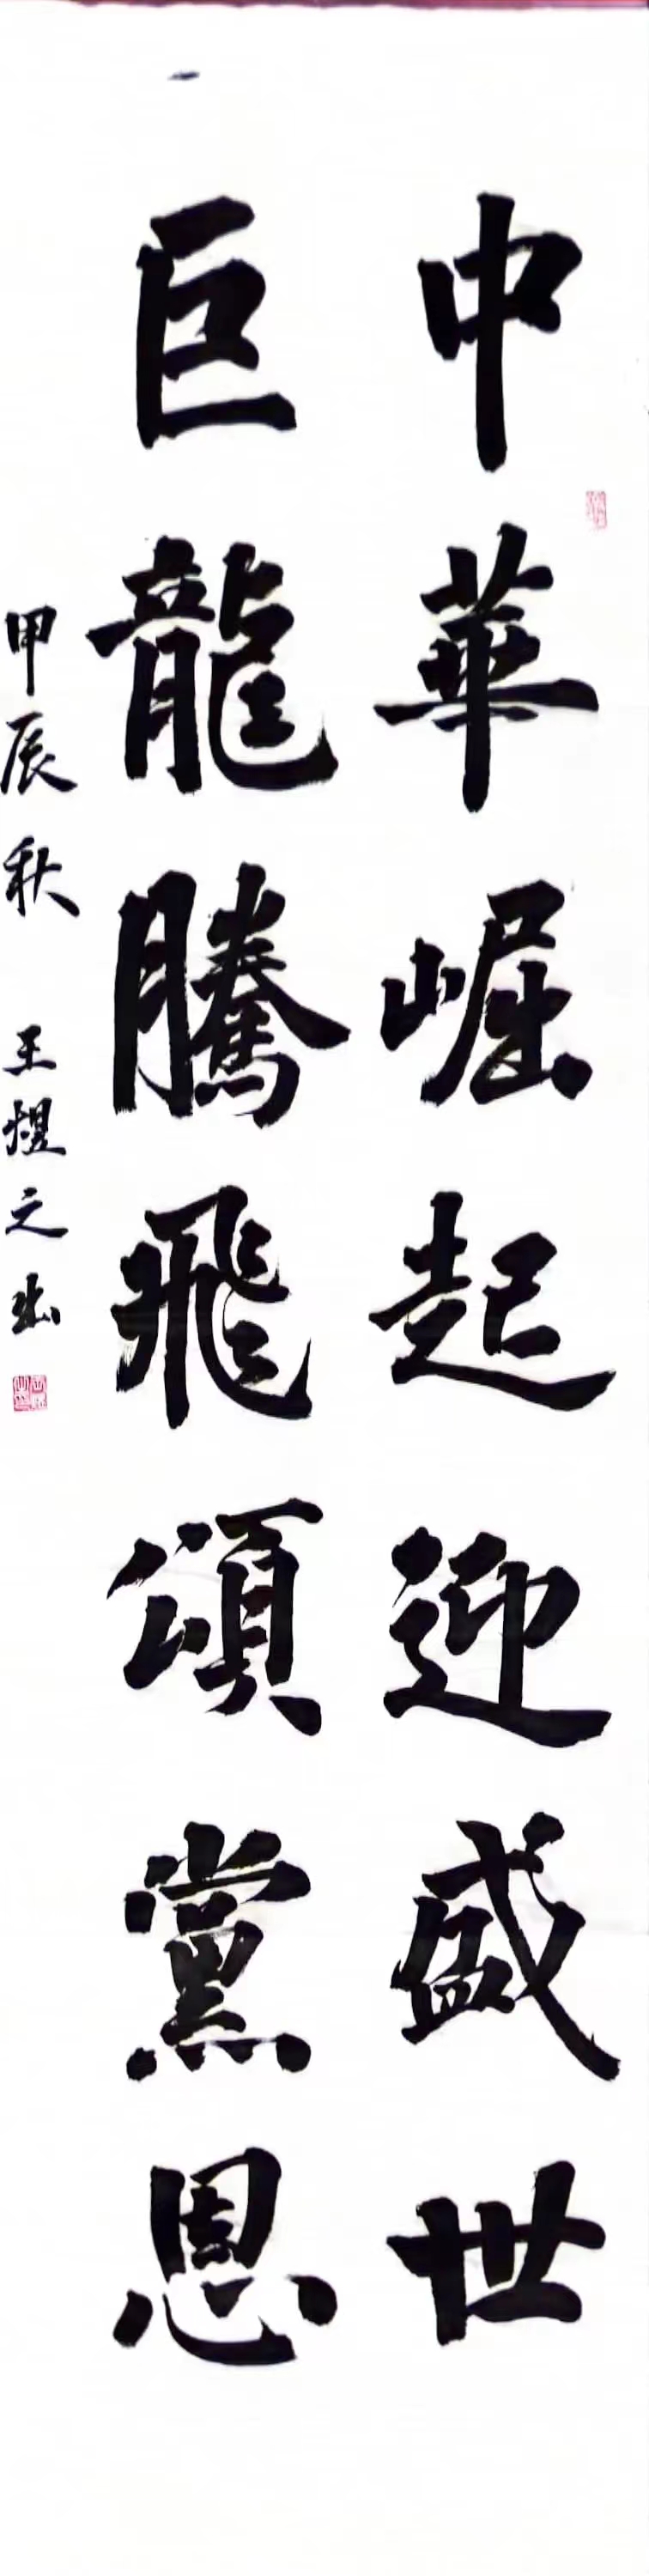 中華崛起迎盛世
巨龍騰飛頌黨恩
甲辰秋 王煜之书